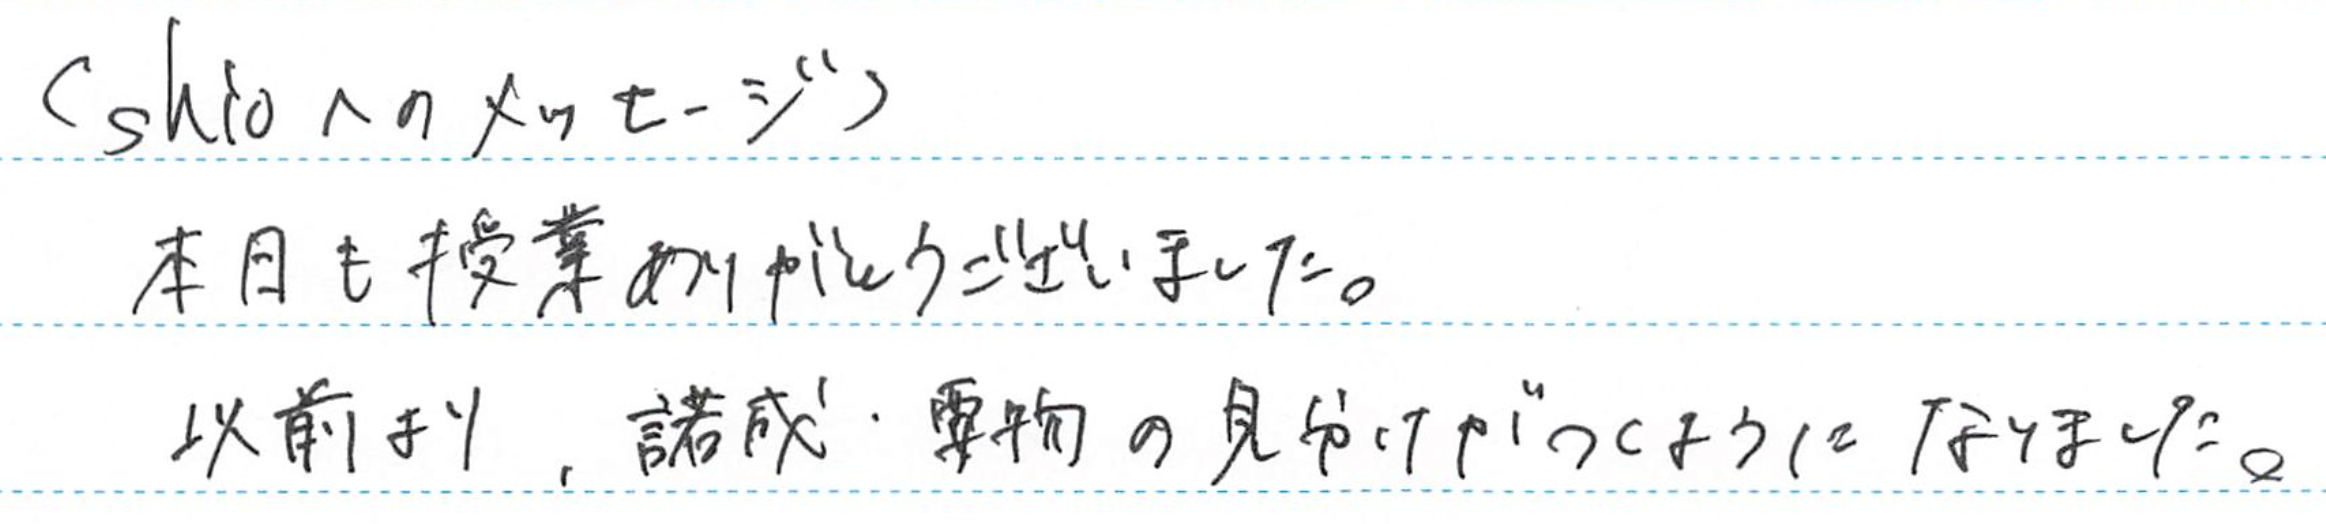 (shioへのメッセージ)
本日も授業ありがとうございました。
以前より、諾成・要物の見分けがつくようになりました。